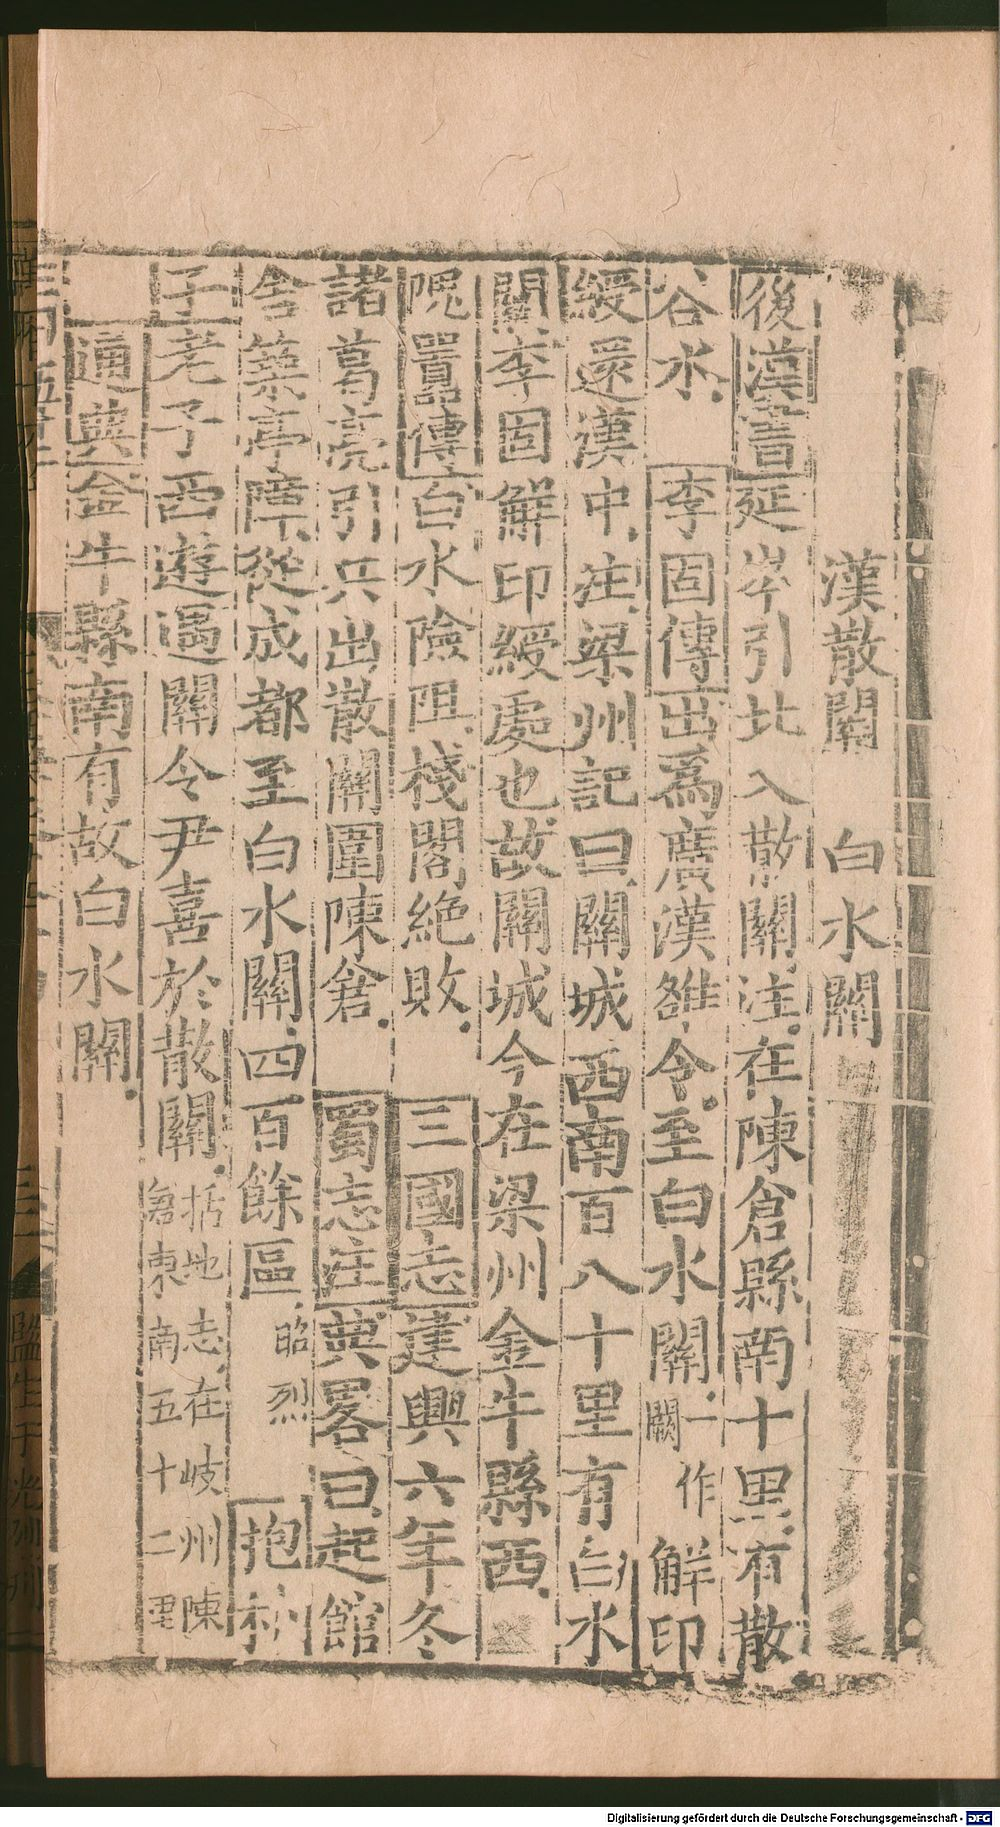 漢散關　白水關
後漢書延岑引北入散關注在陳倉縣南十里有散
谷水　李固傳出爲廣漢雒令至白水關一作闕解印
綬還漢中注梁州記曰關城西南百八十里有白水
關李固解印綬處也故關城今在梁州金牛縣西
隗囂傳白水險阻棧閣絶敗　三國志建興六年冬
諸葛亮引兵出散關圍陳倉　蜀志注典畧曰起館
舍築亭障從成都至白水關四百餘區昭烈　抱朴
子老子西遊遇關令尹喜於散關括地志在岐州陳倉東南五十二里
通典金牛縣南有故白水關
Digitalisierung gefördert durch die Deutsche Forschungsgemeinschaft - DFG